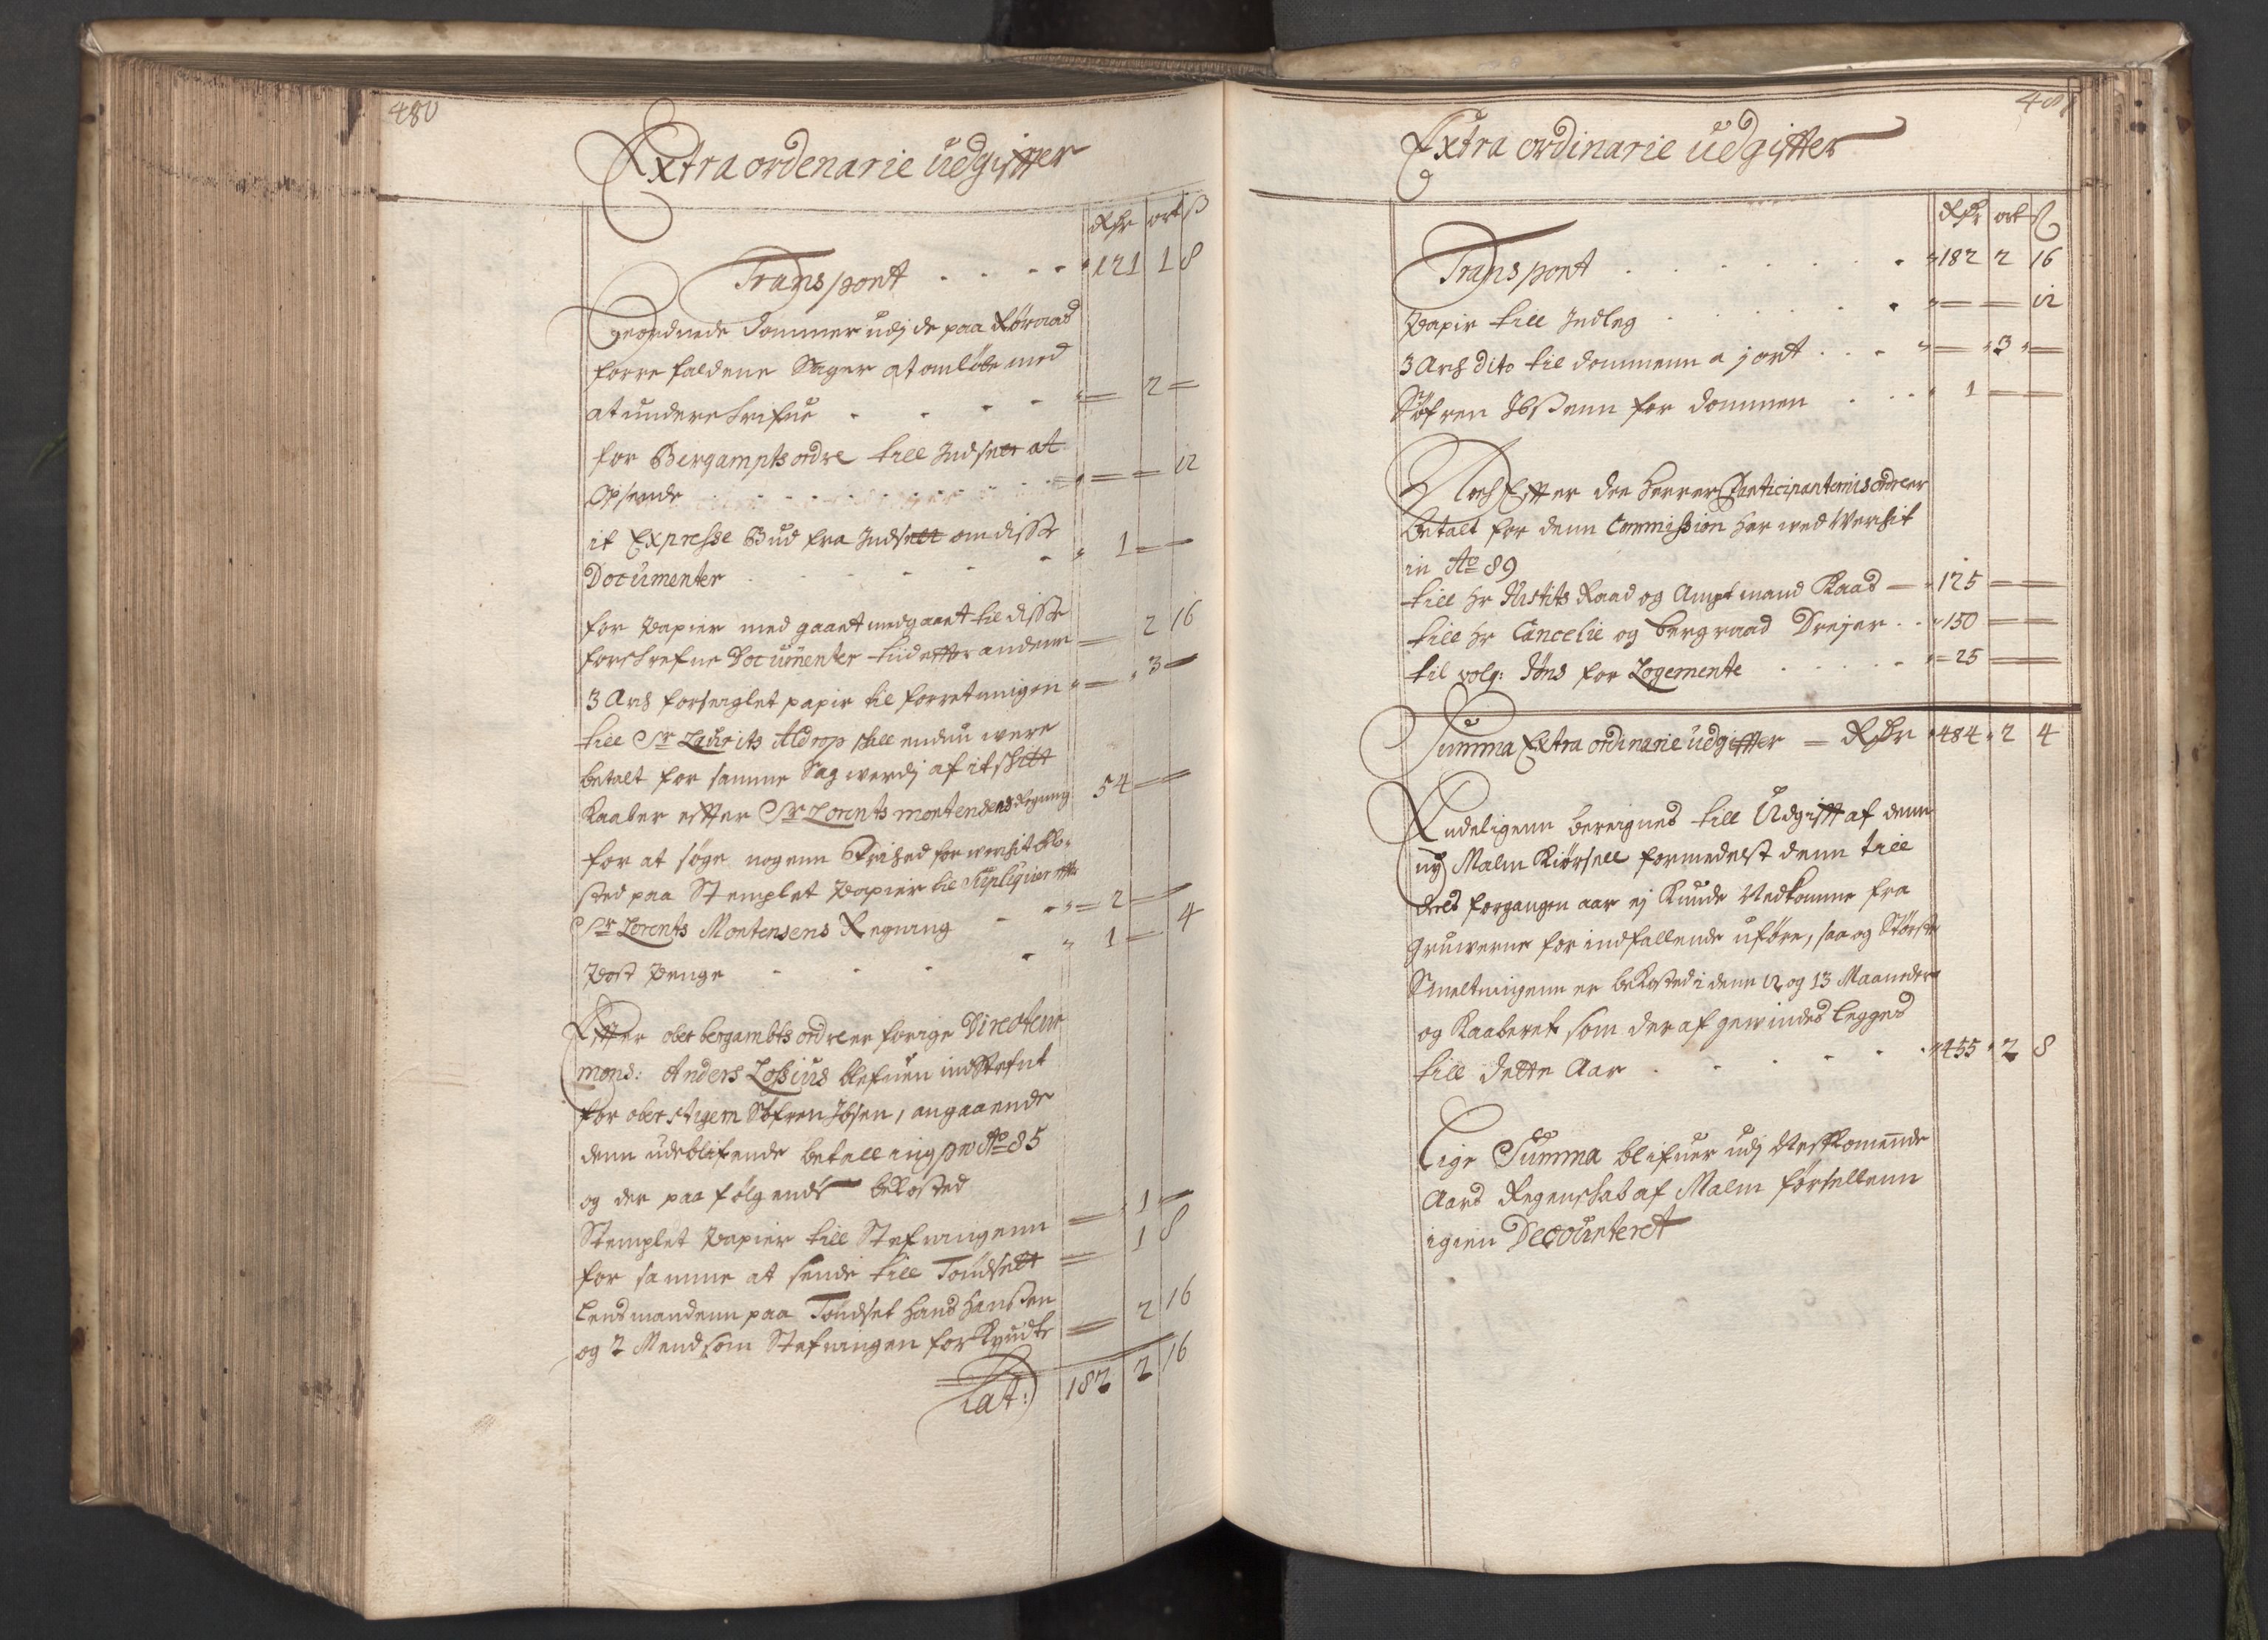 480
Extra ordenarie udgiffter
Rdr ort ß
Transport 121 1 8
geordnede dommer udj de paa Røraas
forre faldene Sager at omløbe med
at underskrifue 2
for Bergampts ordre till Indsett at
Opsende 12
it Expresse Bud fra Indsett om disse
Documenter 1
for Papier med gaaet medgaaet til disse
forskrefne Documenter tiid effter anden 2 16
3 Arch forseiglet papir til forretningen 3
till Sr Laurits Aldrop skall endnu were
betalt for samme Sag werdj af it skått
Kaaber effter Sr Lorents mortensens Regning 54
for at søge nogenn Frihed for werckit be-
sted paa Stemplet Papier til Supliquer effter
Sr Lorents Mortensens Regning 2
Post Penge 1 4
Effter ober bergambts ordre er forige Directeur
mons: Anders Lossius blefuen indstefnt
for oberstigern Søfren Ibsen, angaaende
denn udeblifende betalling pro Ao 85
og der paa følgende bekosted
Stemplet Papier till Stefningenn 1
for samme at sende till Tønsett 1 8
Lensmandenn paa Tønset Hans Hanssen
og 2 Mend som Stefningen forkyndte 2 16
Lat: 182 2 16
481
Extra ordinarie udgiffter
Rdr ort ß
Transport 182 2 16
Papir till Indleg 12
3 Arch dito til dommenn a j ort 3
Søfren Ibssenn for dommen 1
Noch Effter der Herrer Participanternis ordre er
betalt for denn Commission her wed Werckit
in Ao 89
till Hr Justits Raad og Amptmand Kaas 125
till Hr Cancelie og bergraad Drejer 150
til volg: Jøns for Logemente 25
Summa Extra ordinarie udgiffter Rdr 484 2 4
Endeligenn bereignes till Udgifft af denn
ny Malm Kiørsell formedelst denn till
deels forgangen aar ej Kunde Nedkomme fra
Gruwerne for indfallende uføre, saa og Største
Smeltningenn er bekosted i denn 12 og 13 Maaneder
og Kaaberet som der af gewindes legges
till dette Aar 455 2 8
Lige Summa blifuer udj Nestkomende
Aars Regenskab af Malm førsellenn
igien Decourteret